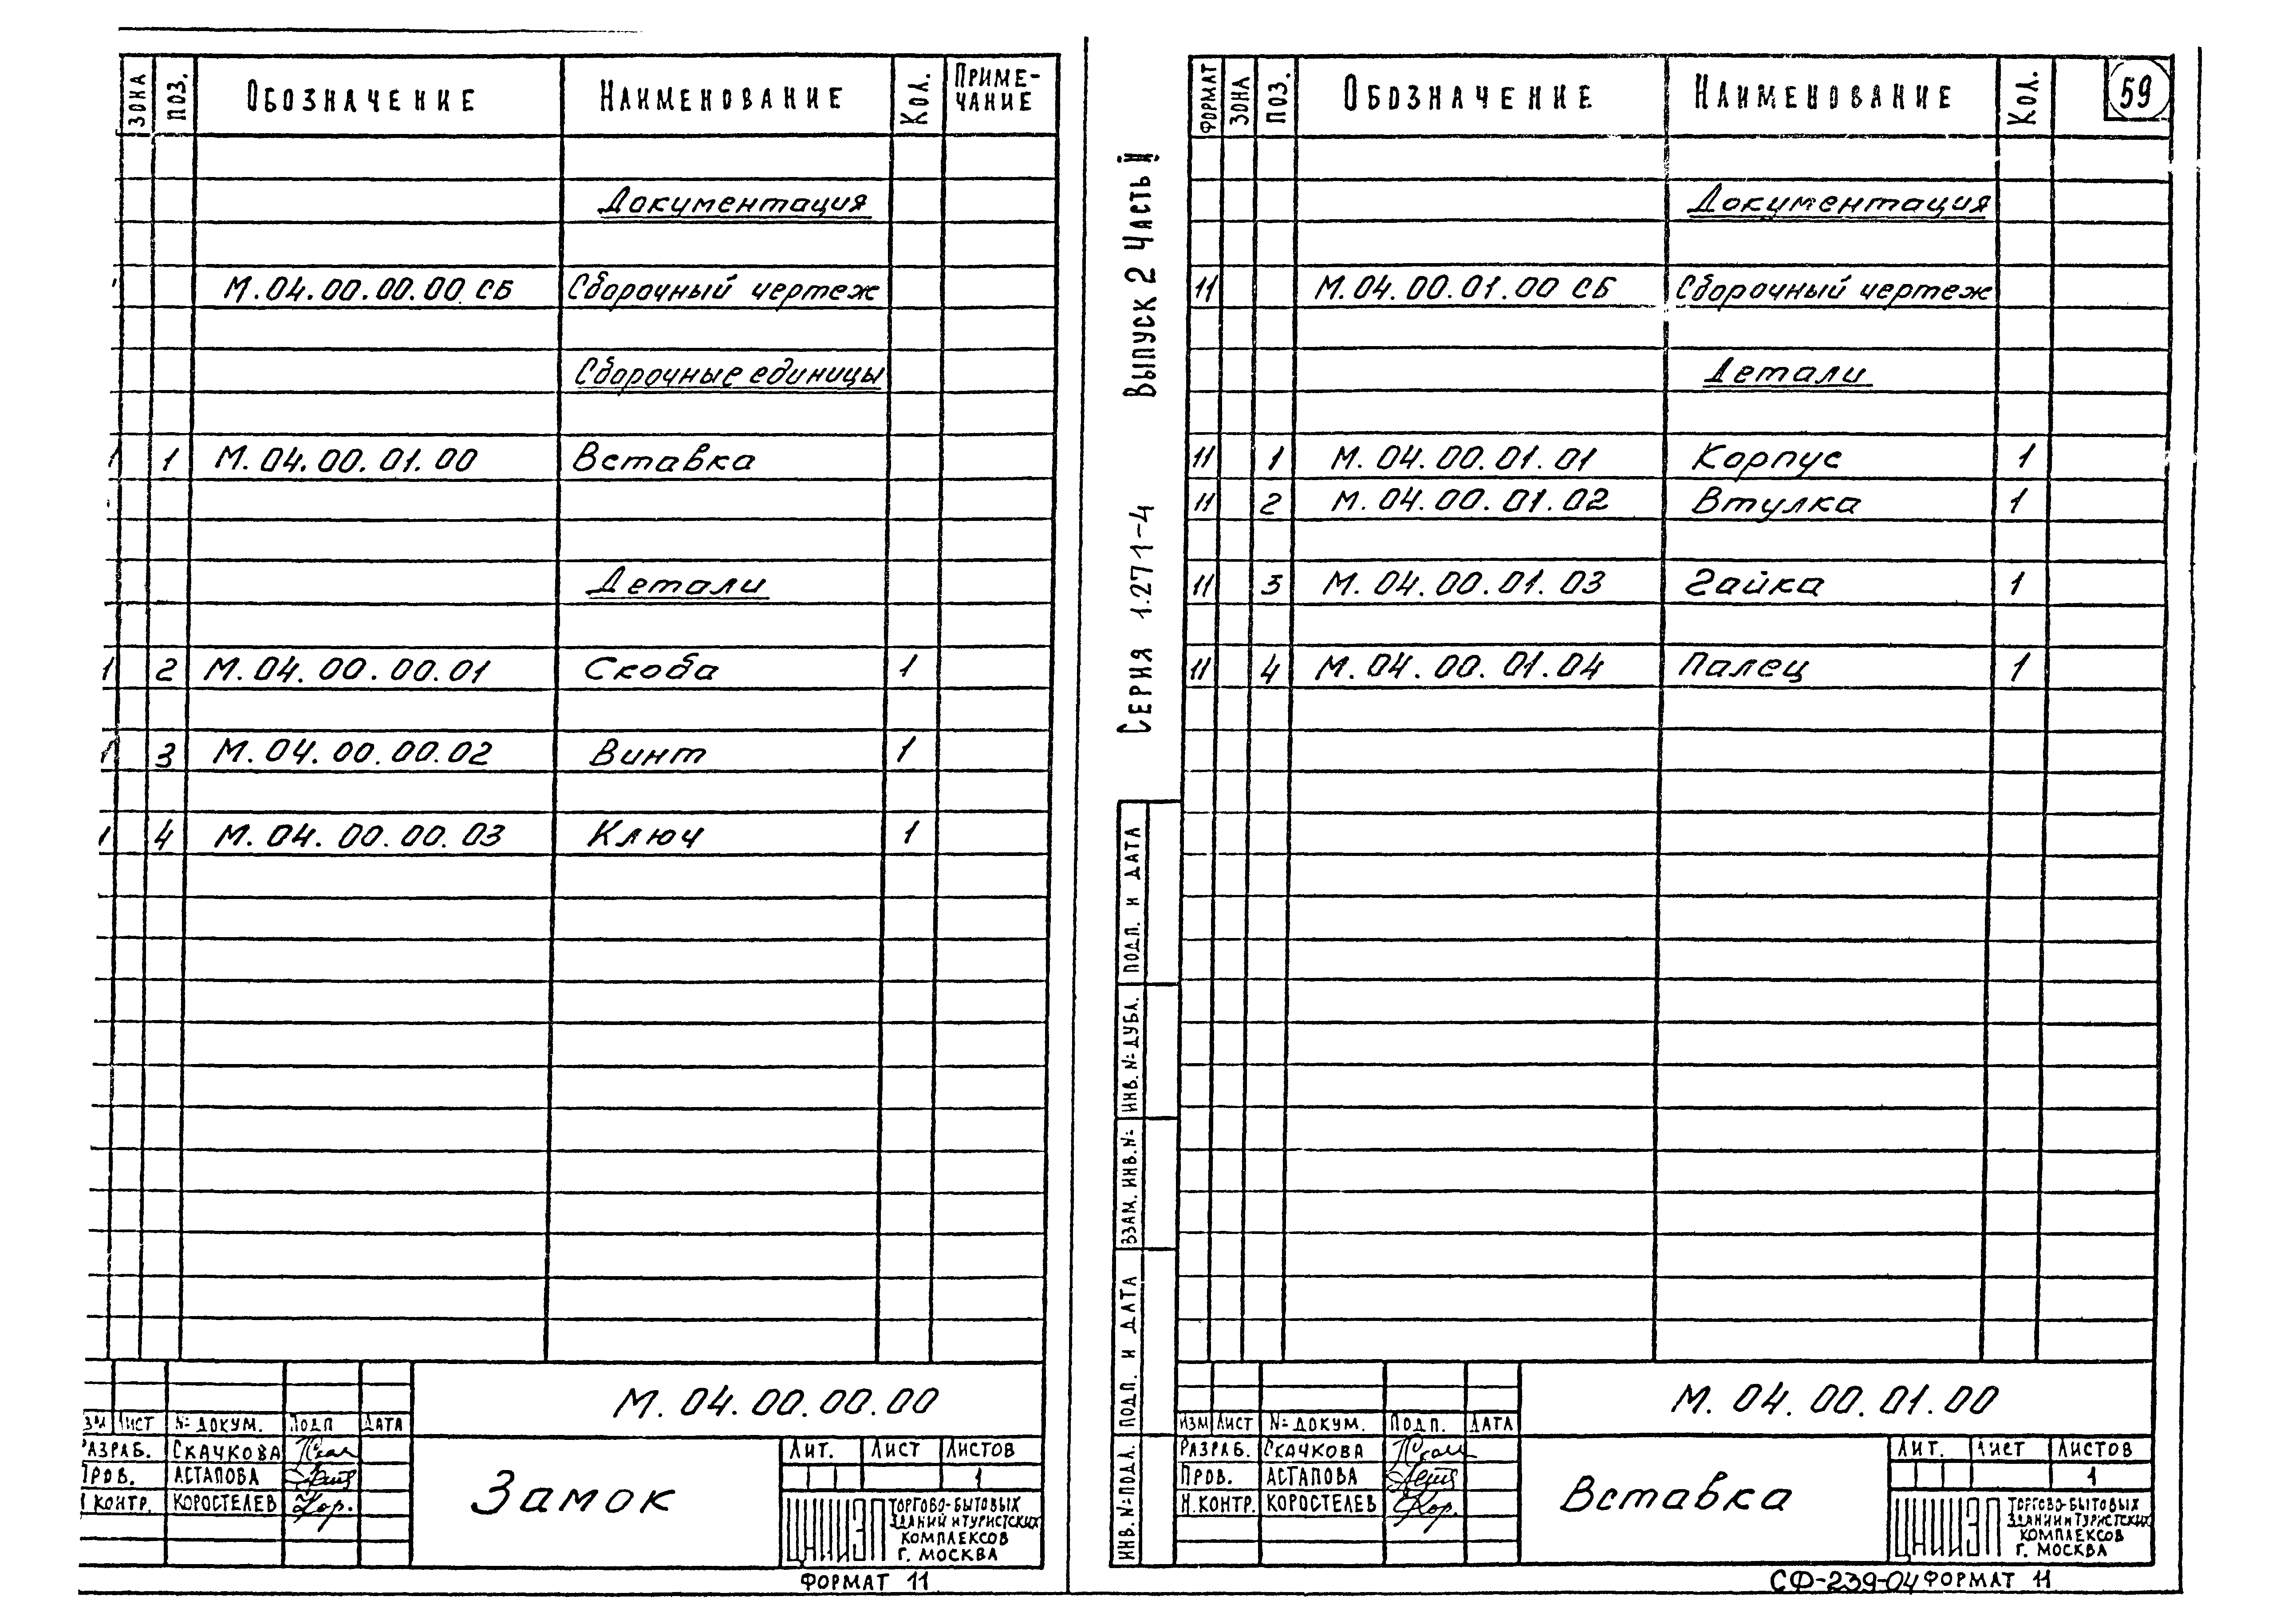 ЗОНА ПОЗ. ОБОЗНАЧЕНИЕ НАИМЕНОВАНИЕ КОЛ. ПРИМЕ-
ЧАНИЕ
Документация
М.04.00.00.00 СБ Сборочный чертеж
Сборочные единицы
1 М.04.00.01.00 Вставка
Детали
2 М.04.00.00.01 Скоба 1
3 М.04.00.00.02 Винт 1
4 М.04.00.00.03 Ключ 1
М.04.00.00.00
ЛИСТ № ДОКУМ. ПОДП ДАТА
РАЗРАБ. СКАЧКОВА
ПРОВ. АСТАПОВА
КОНТР. КОРОСТЕЛЕВ
Замок
ЛИТ. ЛИСТ ЛИСТОВ
1
ЦНИИЭП ТОРГОВО-БЫТОВЫХ
ЗДАНИЙ И ТУРИСТСКИХ
КОМПЛЕКСОВ
Г. МОСКВА
ФОРМАТ 11
СЕРИЯ 1.271-4 ВЫПУСК 2 ЧАСТЬ
ПОДП. И ДАТА
ИНВ. № ДУБЛ.
ВЗАМ. ИНВ. №
ПОДП. И ДАТА
ИНВ. № ПОДЛ.
59
ФОРМАТ ЗОНА ПОЗ. ОБОЗНАЧЕНИЕ НАИМЕНОВАНИЕ КОЛ.
Документация
11 М.04.00.01.00 СБ Сборочный чертеж
Детали
11 1 М.04.00.01.01 Корпус 1
11 2 М.04.00.01.02 Втулка 1
11 3 М.04.00.01.03 Гайка 1
11 4 М.04.00.01.04 Палец 1
М.04.00.01.00
ИЗМ ЛИСТ № ДОКУМ. ПОДП. ДАТА
РАЗРАБ. СКАЧКОВА
ПРОВ. АСТАПОВА
Н.КОНТР. КОРОСТЕЛЕВ
Вставка
ЛИТ. ЛИСТ ЛИСТОВ
1
ЦНИИЭП ТОРГОВО-БЫТОВЫХ
ЗДАНИЙ И ТУРИСТСКИХ
КОМПЛЕКСОВ
Г. МОСКВА
СФ-239-04 ФОРМАТ 11